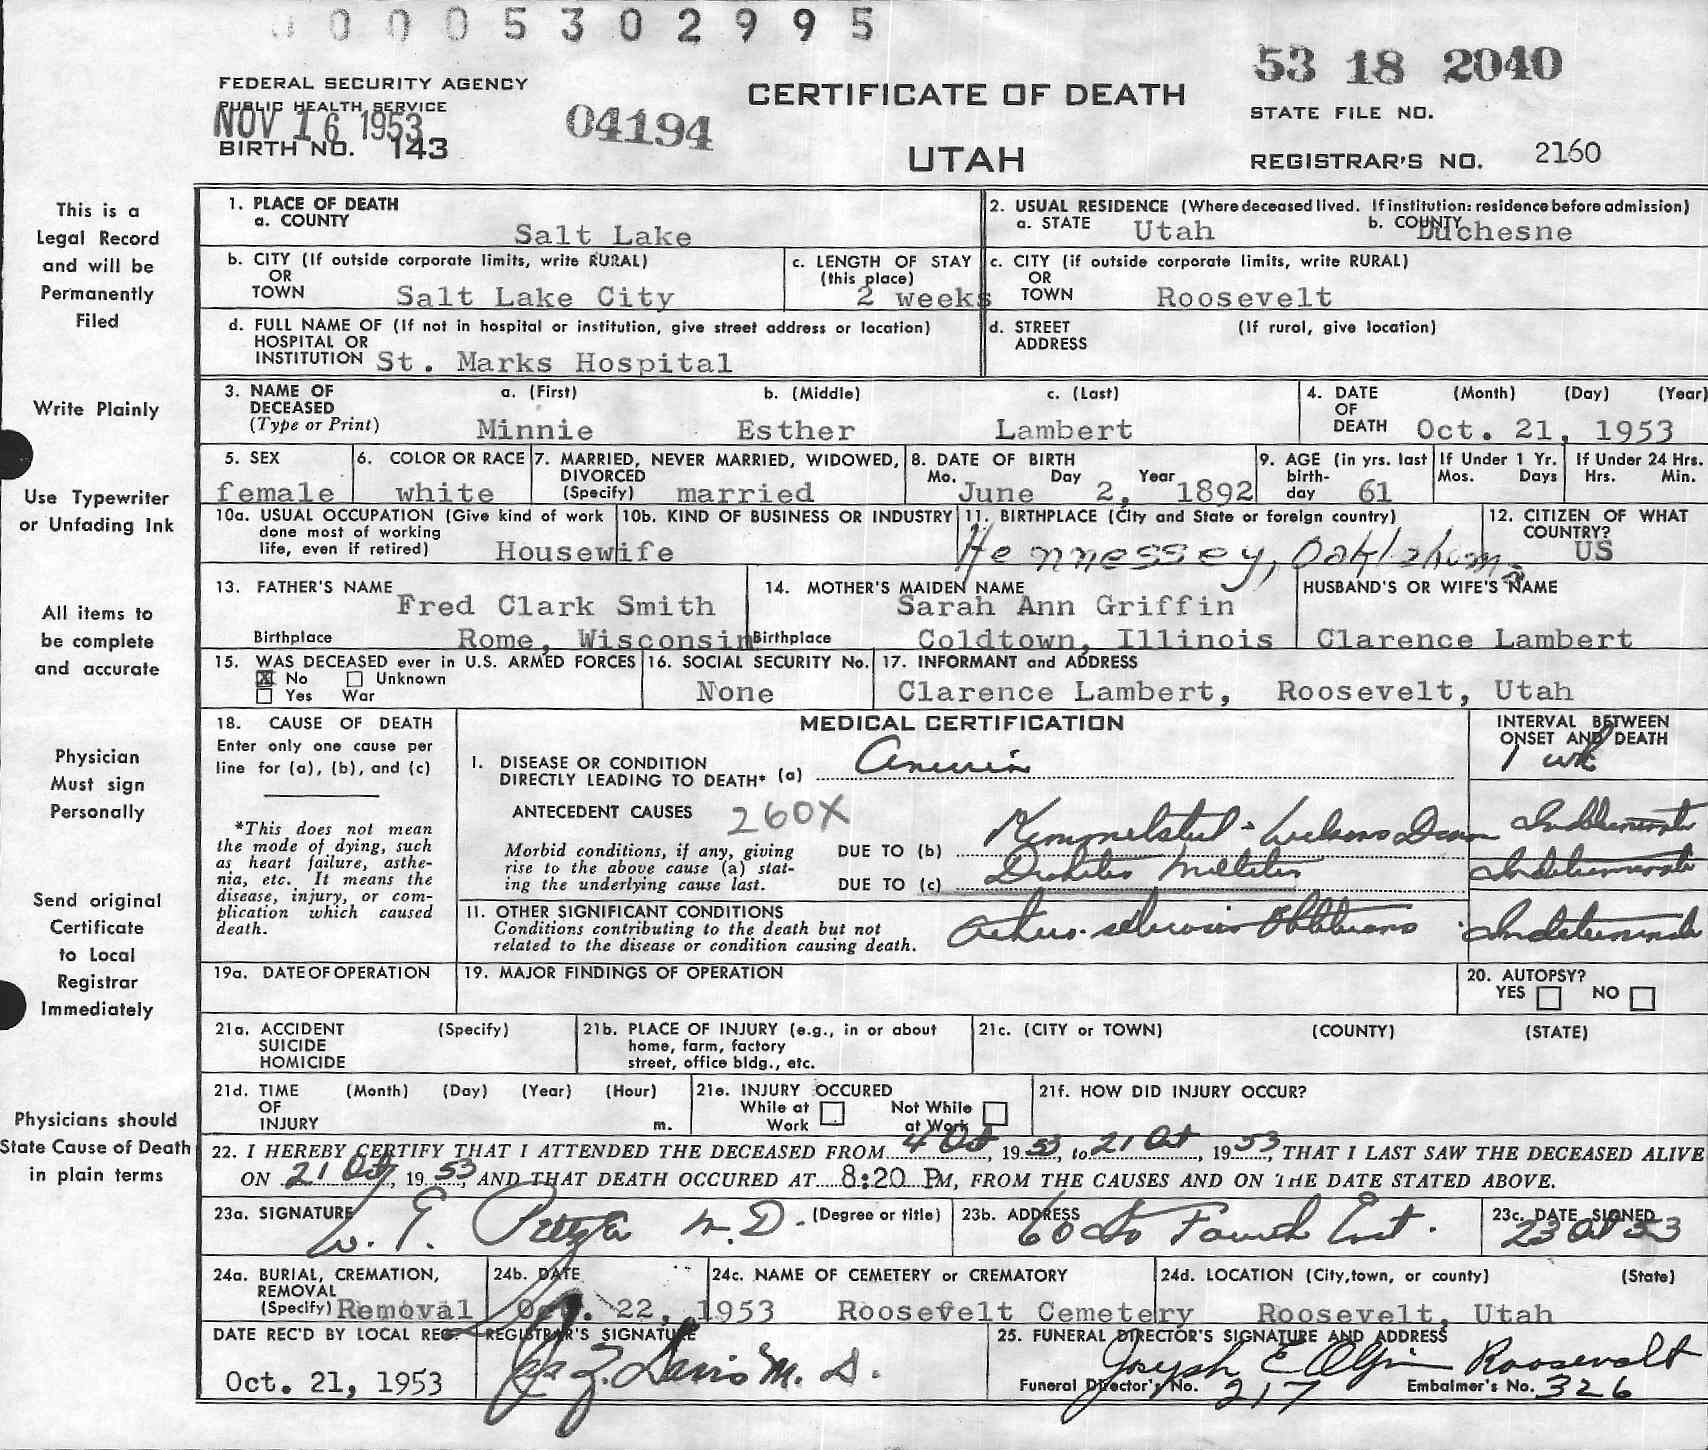 0 0 0 0 5 3 0 2 9 9 5
53 18 2040
FEDERAL SECURITY AGENCY
PUBLIC HEALTH SERVICE
NOV 16 1953
BIRTH NO. 143
04194
CERTIFICATE OF DEATH
UTAH
STATE FILE NO.
REGISTRAR'S NO. 2160
This is a
Legal Record
and will be
Permanently
Filed
Write Plainly
Use Typewriter
or Unfading Ink
All items to
be complete
and accurate
Physician
Must sign
Personally
Send original
Certificate
to Local
Registrar
Immediately
Physicians should
State Cause of Death
in plain terms
1. PLACE OF DEATH
a. COUNTY
Salt Lake
2. USUAL RESIDENCE (Where deceased lived. If institution: residence before admission)
a. STATE Utah b. COUNTY Duchesne
b. CITY (If outside corporate limits, write RURAL)
OR
TOWN Salt Lake City
c. LENGTH OF STAY
(this place)
2 weeks
c. CITY (if outside corporate limits, write RURAL)
OR
TOWN Roosevelt
d. FULL NAME OF (If not in hospital or institution, give street address or location)
HOSPITAL OR
INSTITUTION St. Marks Hospital
d. STREET (If rural, give location)
ADDRESS
3. NAME OF a. (First) b. (Middle) c. (Last)
DECEASED
(Type or Print) Minnie Esther Lambert
4. DATE (Month) (Day) (Year)
OF
DEATH Oct. 21, 1953
5. SEX
female
6. COLOR OR RACE
white
7. MARRIED, NEVER MARRIED, WIDOWED,
DIVORCED
(Specify) married
8. DATE OF BIRTH
Mo. Day Year
June 2, 1892
9. AGE (in yrs. last
birth-
day 61
If Under 1 Yr.
Mos. Days
If Under 24 Hrs.
Hrs. Min.
10a. USUAL OCCUPATION (Give kind of work
done most of working
life, even if retired) Housewife
10b. KIND OF BUSINESS OR INDUSTRY
11. BIRTHPLACE (City and State or foreign country)
Hennessey, Oaklahoma
12. CITIZEN OF WHAT
COUNTRY?
US
13. FATHER'S NAME
Fred Clark Smith
Birthplace Rome, Wisconsin
14. MOTHER'S MAIDEN NAME
Sarah Ann Griffin
Birthplace Coldtown, Illinois
HUSBAND'S OR WIFE'S NAME
Clarence Lambert
15. WAS DECEASED ever in U.S. ARMED FORCES
X No Unknown
Yes War
16. SOCIAL SECURITY No.
None
17. INFORMANT and ADDRESS
Clarence Lambert, Roosevelt, Utah
18. CAUSE OF DEATH
Enter only one cause per
line for (a), (b), and (c)
*This does not mean
the mode of dying, such
as heart failure, asthe-
nia, etc. It means the
disease, injury, or com-
plication which caused
death.
MEDICAL CERTIFICATION
INTERVAL BETWEEN
ONSET AND DEATH
I. DISEASE OR CONDITION
DIRECTLY LEADING TO DEATH* (a)
1 wk
ANTECEDENT CAUSES 260X
Morbid conditions, if any, giving
rise to the above cause (a) stat-
ing the underlying cause last.
DUE TO (b) Indeterminate
DUE TO (c) Diabetes Mellitus Indeterminate
II. OTHER SIGNIFICANT CONDITIONS
Conditions contributing to the death but not
related to the disease or condition causing death.
Indeterminate
19a. DATE OF OPERATION
19. MAJOR FINDINGS OF OPERATION
20. AUTOPSY?
YES NO
21a. ACCIDENT (Specify)
SUICIDE
HOMICIDE
21b. PLACE OF INJURY (e.g., in or about
home, farm, factory
street, office bldg., etc.
21c. (CITY or TOWN) (COUNTY) (STATE)
21d. TIME (Month) (Day) (Year) (Hour)
OF
INJURY m.
21e. INJURY OCCURED
While at Work
Not While at Work
21f. HOW DID INJURY OCCUR?
22. I HEREBY CERTIFY THAT I ATTENDED THE DECEASED FROM 4 Oct, 1953, to 21 Oct, 1953, THAT I LAST SAW THE DECEASED ALIVE
ON 21 Oct, 1953, AND THAT DEATH OCCURED AT 8:20 PM, FROM THE CAUSES AND ON THE DATE STATED ABOVE.
23a. SIGNATURE (Degree or title)
W. E. M.D.
23b. ADDRESS
Fourth East.
23c. DATE SIGNED
23 Oct 53
24a. BURIAL, CREMATION,
REMOVAL
(Specify) Removal
24b. DATE
Oct. 22, 1953
24c. NAME OF CEMETERY or CREMATORY
Roosevelt Cemetery
24d. LOCATION (City, town, or county) (State)
Roosevelt, Utah
DATE REC'D BY LOCAL REG.
Oct. 21, 1953
REGISTRAR'S SIGNATURE
Davis M. D.
25. FUNERAL DIRECTOR'S SIGNATURE AND ADDRESS
Joseph E Olpin Roosevelt
Funeral Director's No. 217 Embalmer's No. 326